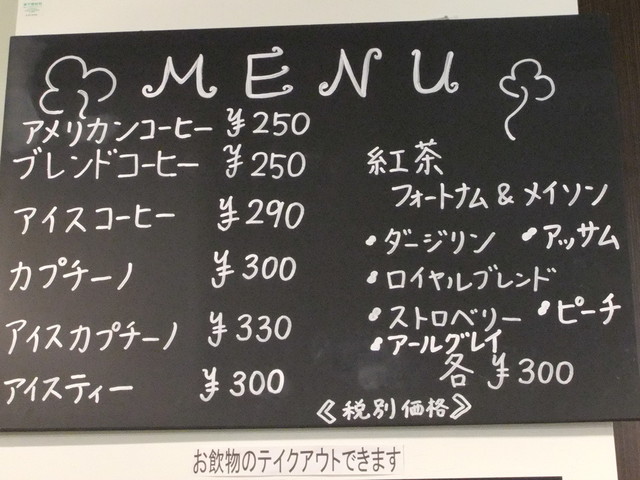 MENU
アメリカンコーヒー ¥250
ブレンドコーヒー ¥250
アイスコーヒー ¥290
カプチーノ ¥300
アイスカプチーノ ¥330
アイスティー ¥300
紅茶
フォートナム&メイソン
•ダージリン •アッサム
•ロイヤルブレンド
•ストロベリー •ピーチ
•アールグレイ
各 ¥300
《税別価格》
お飲物のテイクアウトできます